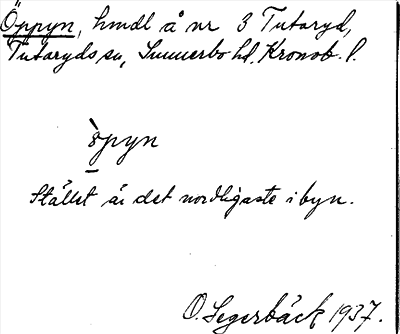 Öppyn, hmdl å nr 3 Tutaryd,
Tutaryds sn, Sunnerbo hd, Kronob. l.
öpyn
Stället är det nordligaste i byn.
O. Segerbäck 1937.